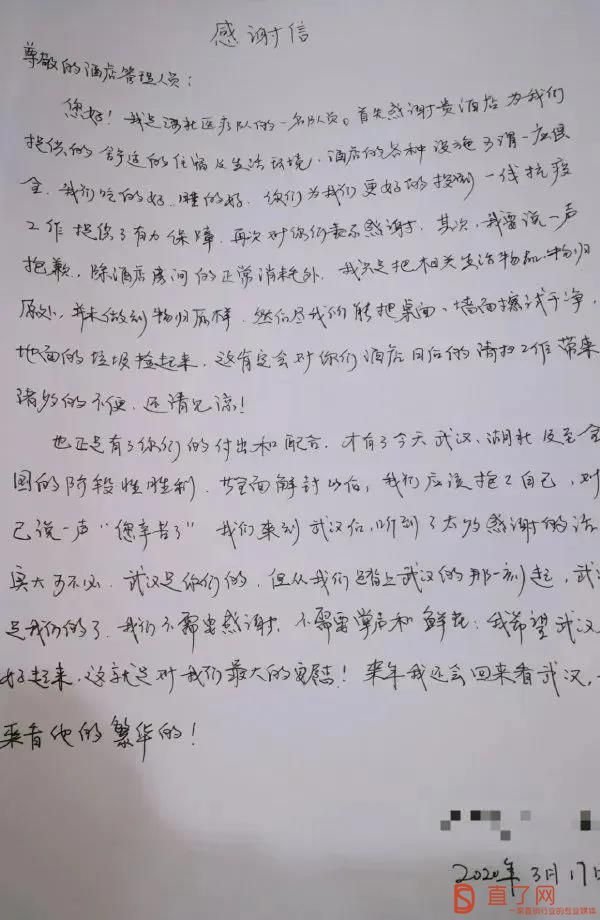 感谢信
尊敬的酒店管理人员：
您好！我是河北医疗队的一名队员。首先感谢贵酒店为我们
提供的舒适的住宿及生活环境，酒店的各种设施可谓一应俱
全，我们吃的好，睡的好，你们为我们更好的投入到一线抗疫
工作提供了有力保障，再次对你们表示感谢，其次，我要说一声
抱歉，除酒店房间的正常消耗外，我只是把相关生活物品物归
原处，并未做到物归原样，然后尽我所能把桌面、墙面擦拭干净，
地面的垃圾捡起来，这肯定会对你们酒店日后的清扫工作带来
诸多的不便，还请见谅！
也正是有了你们的付出和配合，才有了今天武汉、湖北及至全
国的阶段性胜利，等全面解封以后，我们应该抱抱自己，对
己说一声“您辛苦了”我们来到武汉后，听到了太多感谢的话
真大可不必，武汉是你们的，但从我们踏上武汉的那一刻起，武
是我们的了，我们不需要感谢，不需要掌声和鲜花；我希望武汉
好起来，这就是对我们最大的宽慰！来年我还会回来看武汉，
来看他的繁华的！
2020年3月17日
直了网
一家直销行业的专业媒体